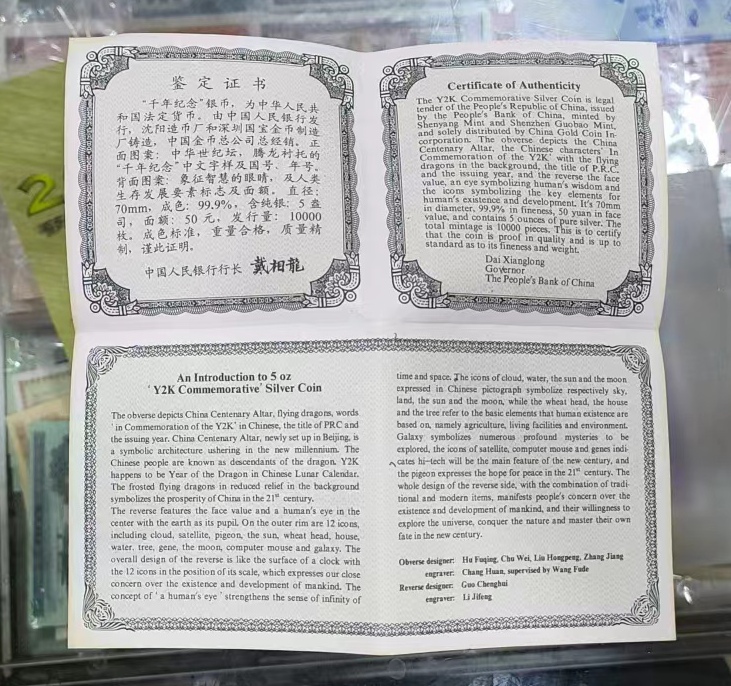 鉴定证书
“千年纪念”银币，为中华人民共
和国法定货币。由中国人民银行发
行，沈阳造币厂和深圳国宝金币制造
厂铸造，中国金币总公司总经销。正
面图案：中华世纪坛，腾龙衬托的
“千年纪念”中文字样及国号、年号。
背面图案：象征智慧的眼睛，及人类
生存发展要素标志及面额。直径：
70mm，成色：99.9%，含纯银：5盎
司，面额：50元，发行量：10000
枚。成色标准，重量合格，质量精
制，谨此证明。
中国人民银行行长 戴相龍
Certificate of Authenticity
The Y2K Commemorative Silver Coin is legal
tender of the People's Republic of China, issued
by the People's Bank of China, minted by
Shenyang Mint and Shenzhen Guobao Mint,
and solely distributed by China Gold Coin In-
corporation. The obverse depicts the China
Centenary Altar, the Chinese characters' In
Commemoration of the Y2K' with the flying
dragons in the background, the title of P.R.C.
and the issuing year, and the reverse the face
value, an eye symbolizing human's wisdom and
the icons symbolizing the key elements for
human's existence and development. It's 70mm
in diameter, 99.9% in fineness, 50 yuan in face
value, and contains 5 ounces of pure silver. The
total mintage is 10000 pieces. This is to certify
that the coin is proof in quality and is up to
standard as to its fineness and weight.
Dai Xianglong
Governor
The People's Bank of China
An Introduction to 5 oz
'Y2K Commemorative' Silver Coin
The obverse depicts China Centenary Altar, flying dragons, words
'in Commemoration of the Y2K' in Chinese, the title of PRC and
the issuing year. China Centenary Altar, newly set up in Beijing, is
a symbolic architecture ushering in the new millennium. The
Chinese people are known as descendants of the dragon. Y2K
happens to be Year of the Dragon in Chinese Lunar Calendar.
The frosted flying dragons in reduced relief in the background
symbolizes the prosperity of China in the 21st century.
The reverse features the face value and a human's eye in the
center with the earth as its pupil. On the outer rim are 12 icons,
including cloud, satellite, pigeon, the sun, wheat head, house,
water, tree, gene, the moon, computer mouse and galaxy. The
overall design of the reverse is like the surface of a clock with
the 12 icons in the position of its scale, which expresses our close
concern over the existence and development of mankind. The
concept of 'a human's eye' strengthens the sense of infinity of
time and space. The icons of cloud, water, the sun and the moon
expressed in Chinese pictograph symbolize respectively sky,
land, the sun and the moon, while the wheat head, the house
and the tree refer to the basic elements that human existence are
based on, namely agriculture, living facilities and environment.
Galaxy symbolizes numerous profound mysteries to be
explored, the icons of satellite, computer mouse and genes indi-
cates hi-tech will be the main feature of the new century, and
the pigeon expresses the hope for peace in the 21st century. The
whole design of the reverse side, with the combination of tradi-
tional and modern items, manifests people's concern over the
existence and development of mankind, and their willingness to
explore the universe, conquer the nature and master their own
fate in the new century.
Obverse designer: Hu Fuqing, Chu Wei, Liu Hongpeng, Zhang Jiang
engraver: Chang Huan, supervised by Wang Fude
Reverse designer: Guo Chenghui
engraver: Li Jifeng